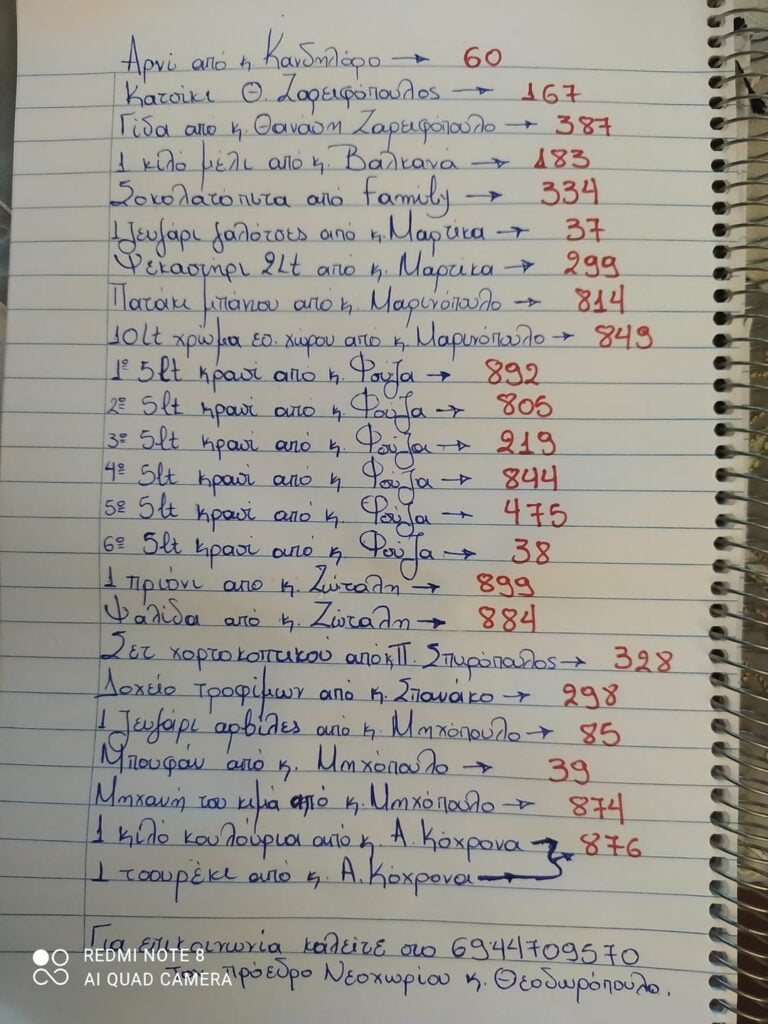 Αρνί από κ. Κανδηλάρο → 60
Κατσίκι Θ. Ζαρειφόπουλος → 167
Γίδα από κ. Θανάση Ζαρειφόπουλο → 387
1 κιλό μέλι από κ. Βαλκανά → 183
Σοκολατόπιτα από family → 334
1 ζευγάρι γαλότσες από κ. Μαρτίκα → 37
Ψεκαστήρι 2Lt από κ. Μαρτίκα → 299
Πατάκι μπάνιου από κ. Μαρινόπουλο → 814
10lt χρώμα εσ. χώρου από κ. Μαρινόπουλο → 849
1º 5lt κρασί από κ. Φούζα → 892
2º 5lt κρασί από κ. Φούζα → 805
3º 5lt κρασί από κ. Φούζα → 219
4º 5lt κρασί από κ. Φούζα → 844
5º 5lt κρασί από κ. Φούζα → 475
6º 5lt κρασί από κ. Φούζα → 38
1 πριόνι από κ. Ζώταλη → 899
Ψαλίδα από κ. Ζώταλη → 884
Σετ χορτοκοπτικού από κ Π. Σπυρόπουλος → 328
Δοχείο τροφίμων από κ. Σπανάκο → 298
1 ζευγάρι αρβίλες από κ. Μηχόπουλο → 85
Μπουφάν από κ. Μηχόπουλο → 39
Μηχανή του κιμά από κ. Μηχόπουλο → 874
1 κιλό κουλούρια από κ. Α. Κόχρονα → 876
1 τσουρέκι από κ. Α. Κόχρονα →
Για επικοινωνία καλείτε στο 6944709570
τον πρόεδρο Νεοχωρίου κ. Θεοδωρόπουλο.
REDMI NOTE 8
AI QUAD CAMERA